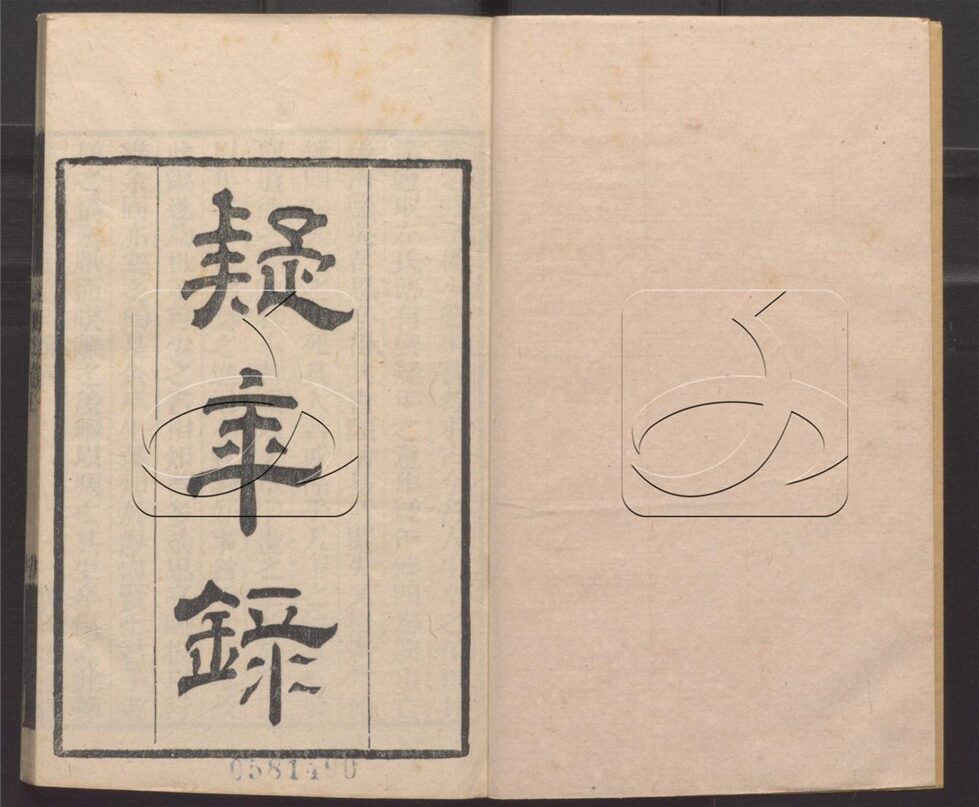 疑年錄
0581490